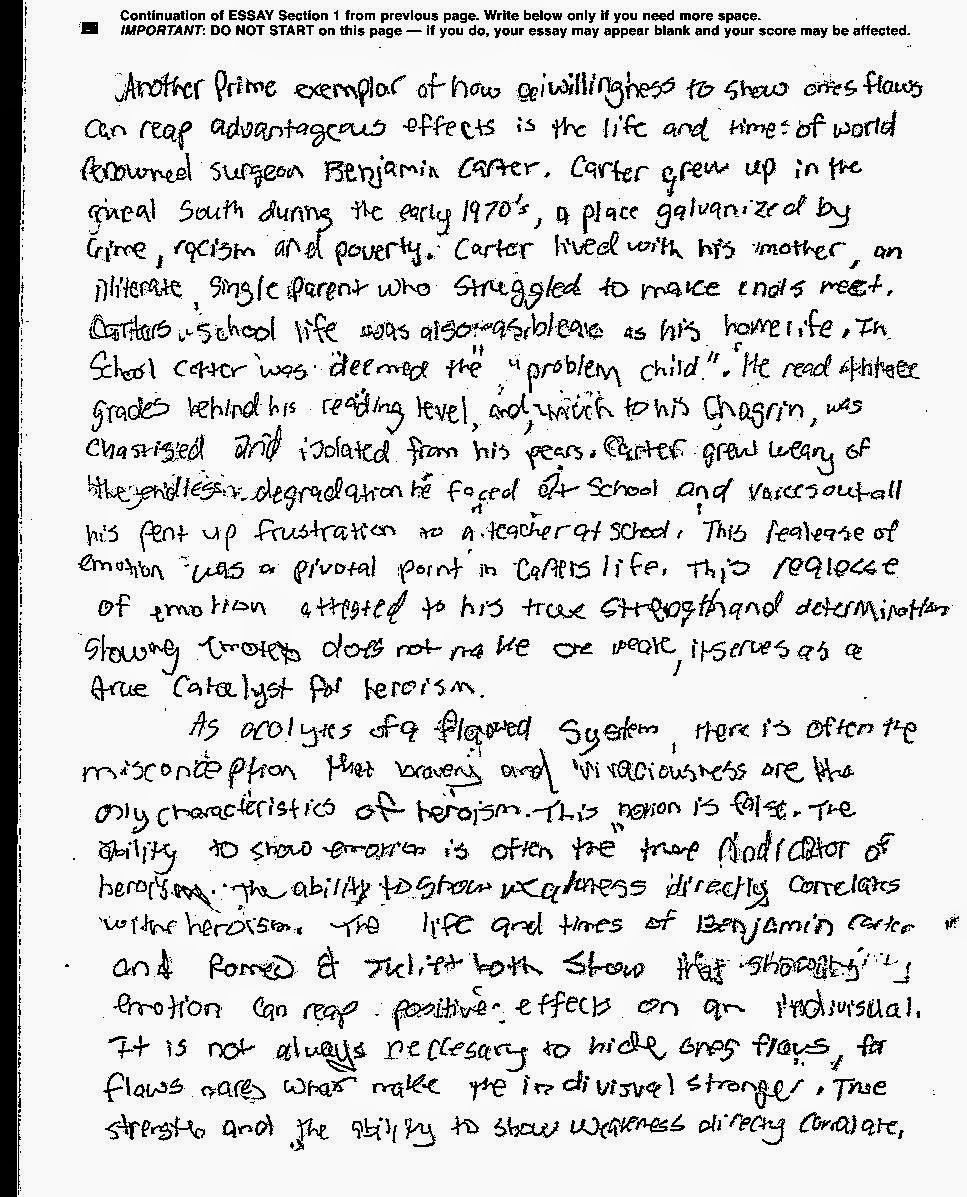 Continuation of ESSAY Section 1 from previous page. Write below only if you need more space.
IMPORTANT: DO NOT START on this page — if you do, your essay may appear blank and your score may be affected.
Another Prime exemplar of how willingness to show ones flaws
can reap advantageous effects is the life and times of world
renowned surgeon Benjamin Carter. Carter grew up in the
South during the early 1970's, a place galvanized by
Crime, racism and poverty. Carter lived with his mother, an
illiterate, single parent who struggled to make ends meet.
Carters school life was also as his home life. In
School Carter was deemed the "problem child". He read three
grades behind his reading level, and, which to his Chagrin, was
chastised and isolated from his pears. Carter grew weary of
the endless degradation he faced at School and out all
his pent up frustration to a teacher at school. This realease of
emotion was a pivotal point in Carters life. This realease
of emotion attested to his true strength and determination
Showing emotion does not make one weak, it serves as a
true Catalyst for heroism.
As acolytes of a flawed System, there is often the
misconception that bravery and vivaciousness are the
only characteristics of heroism. This notion is false. The
ability to show emotion is often the true indicator of
heroism. The ability to show weakness directly correlates
with heroism. The life and times of Benjamin Carter
and Romeo & Juliet both show that showing
emotion can reap positive effects on an indivisual.
It is not always neccesary to hide ones flaws, for
flaws are what make the indivisual stronger. True
strength and the ability to show weakness directly correlate,